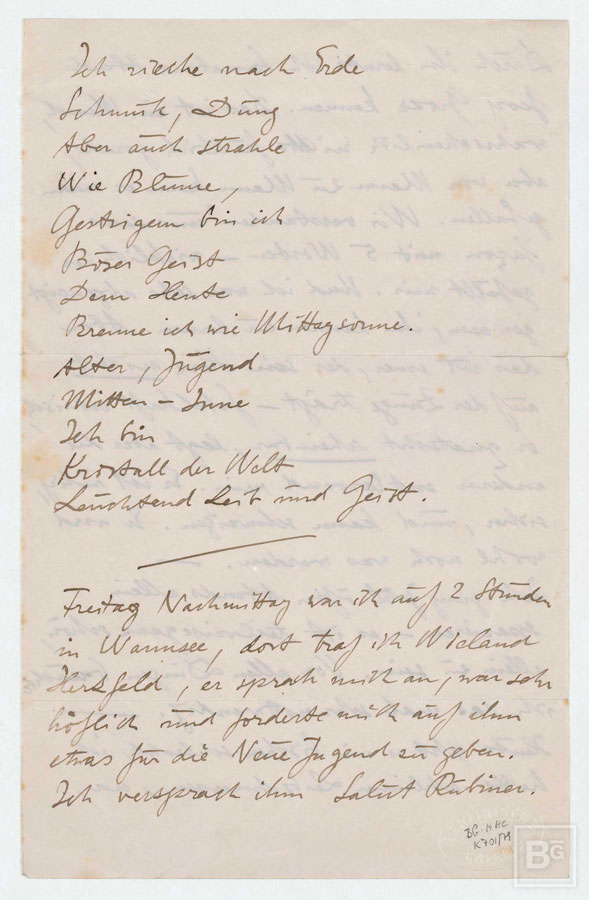 Ich rieche nach Erde
Schmutz, Dung
Aber auch strahle
Wie Blume,
Gestrigem bin ich
Böser Geist
Dem Heute
Brenne ich wie Mittagsonne.
Alter, Jugend
Mitten – Inne
Ich bin
Kristall der Welt
Leuchtend Leib und Geist.
Freitag Nachmittag war ich auf 2 Stunden
in Wannsee, dort traf ich Wieland
Herzfeld, er sprach mich an, war sehr
höflich und forderte mich auf ihm
etwas für die Neue Jugend zu geben.
Ich versprach ihm Salut Rubiner.
BG HHC
K 701/79
BG